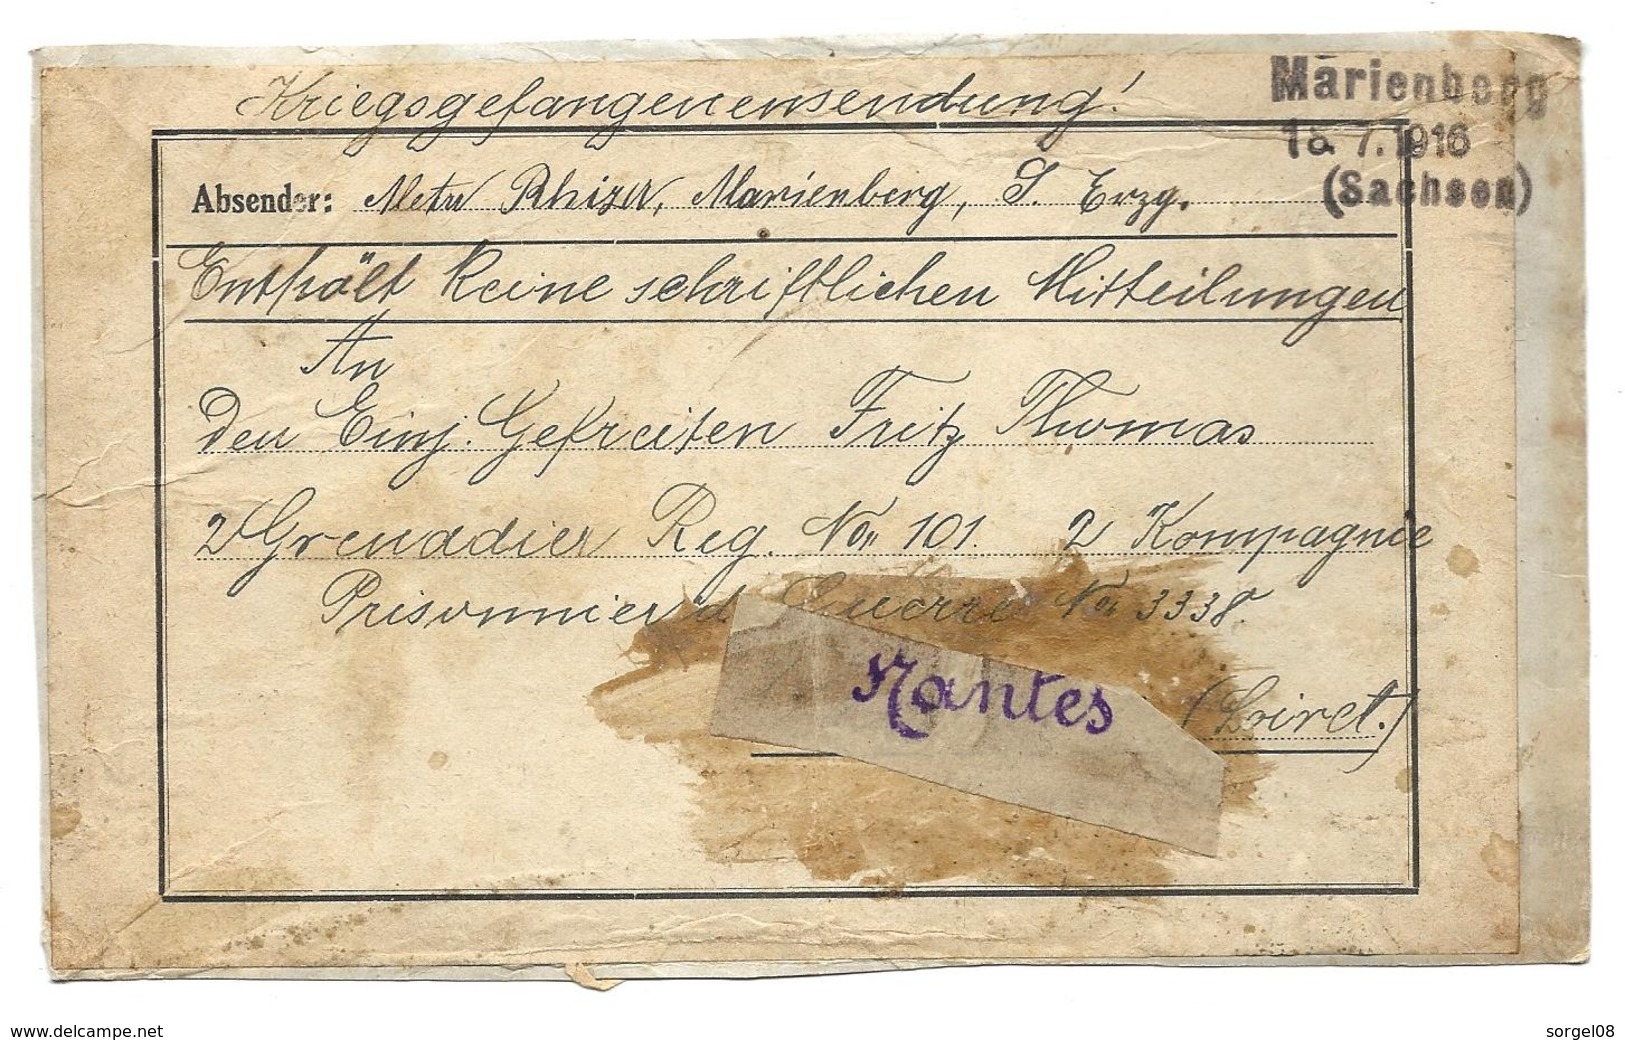 Kriegsgefangenensendung!
Marienberg
7.1916
(Sachsen)
Absender: Marienberg, S. Erzg.
Enthält keine schriftlichen Mitteilungen
An
den Einj. Gefreiten Fritz Thomas
2 Grenadier Reg. No. 101. 2 Kompagnie
Prisonnier d Guerre No. 3338.
Nantes
(Loiret.)
www.delcampe.net
sorgel08